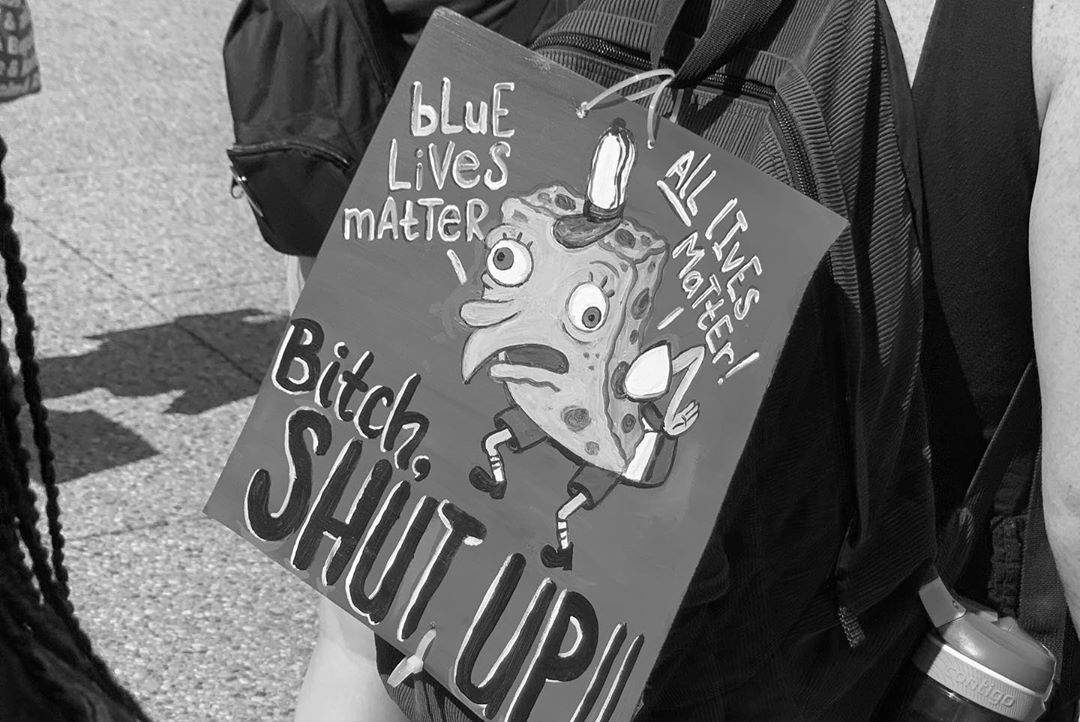 bLuE
LiVeS
mAtTeR
ALL LIVES
MaTtEr!
Bitch,
SHUT UP!!
contigo